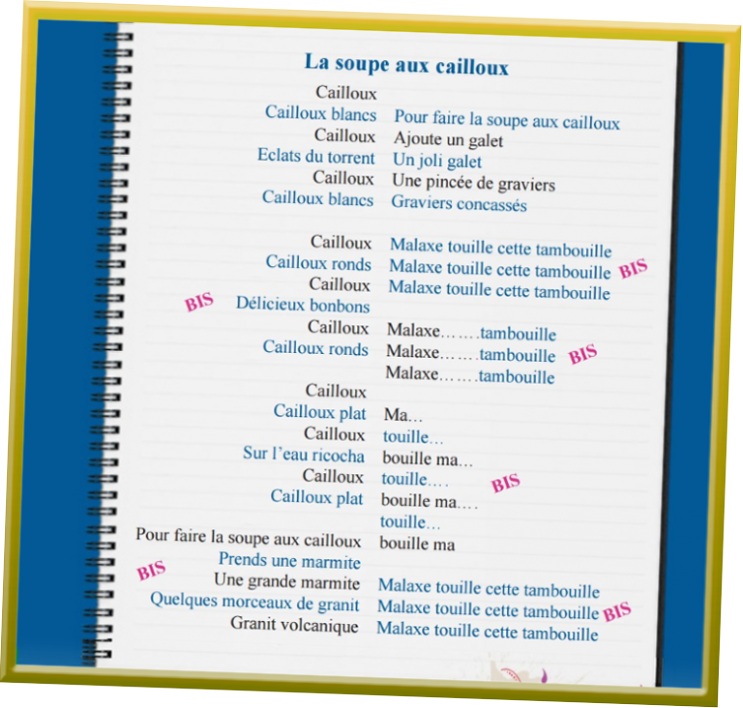 La soupe aux cailloux
Cailloux
Cailloux blancs
Cailloux
Eclats du torrent
Cailloux
Cailloux blancs
Cailloux
Cailloux ronds
Cailloux
BIS
Délicieux bonbons
Cailloux
Cailloux ronds
Cailloux
Cailloux plat
Cailloux
Sur l’eau ricocha
Cailloux
Cailloux plat
Pour faire la soupe aux cailloux
Prends une marmite
BIS
Une grande marmite
Quelques morceaux de granit
Granit volcanique
Pour faire la soupe aux cailloux
Ajoute un galet
Un joli galet
Une pincée de graviers
Graviers concassés
Malaxe touille cette tambouille
Malaxe touille cette tambouille
BIS
Malaxe touille cette tambouille
Malaxe…….tambouille
Malaxe…….tambouille
BIS
Malaxe…….tambouille
Ma…
touille…
bouille ma…
touille….
BIS
bouille ma….
touille…
bouille ma
Malaxe touille cette tambouille
Malaxe touille cette tambouille
BIS
Malaxe touille cette tambouille